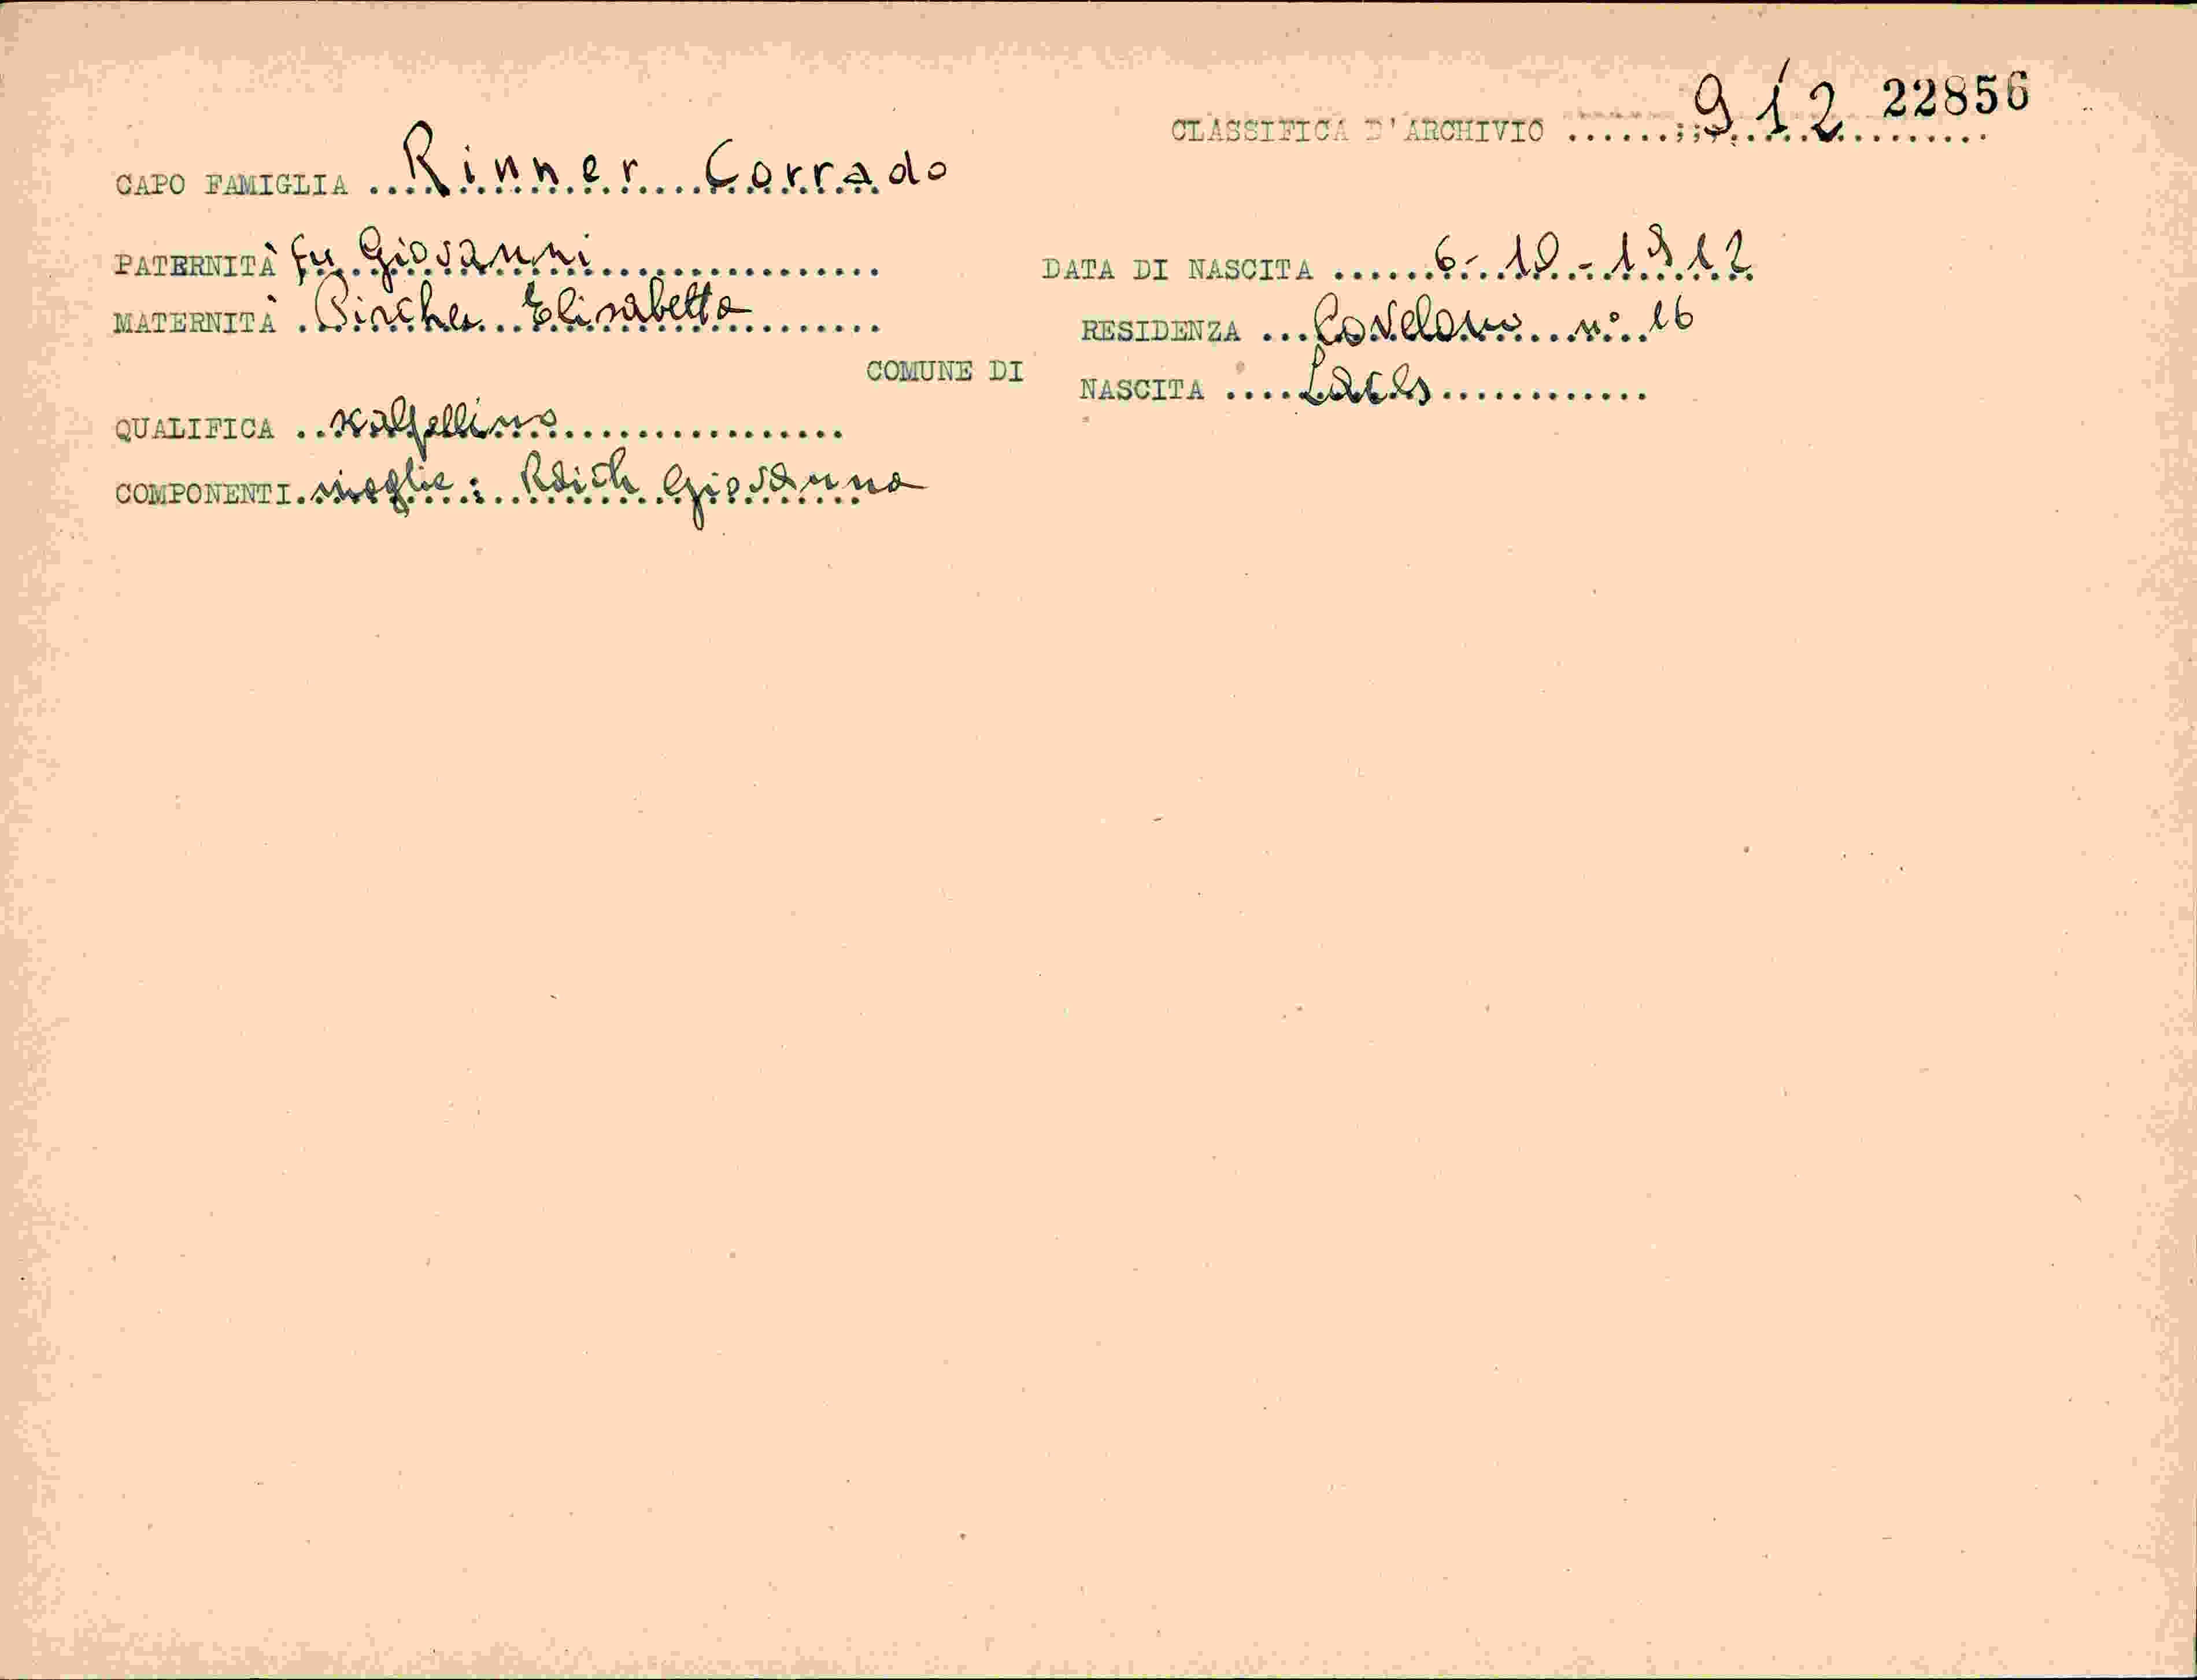 CLASSIFICA D'ARCHIVIO 912 22856
CAPO FAMIGLIA Rinner Corrado
PATERNITÀ fu Giovanni
DATA DI NASCITA 6-10-1912
MATERNITÀ Pircher Elisabetta
RESIDENZA Covelano n° 16
COMUNE DI
NASCITA Laces
QUALIFICA scalpellino
COMPONENTI moglie: Raich Giovanna